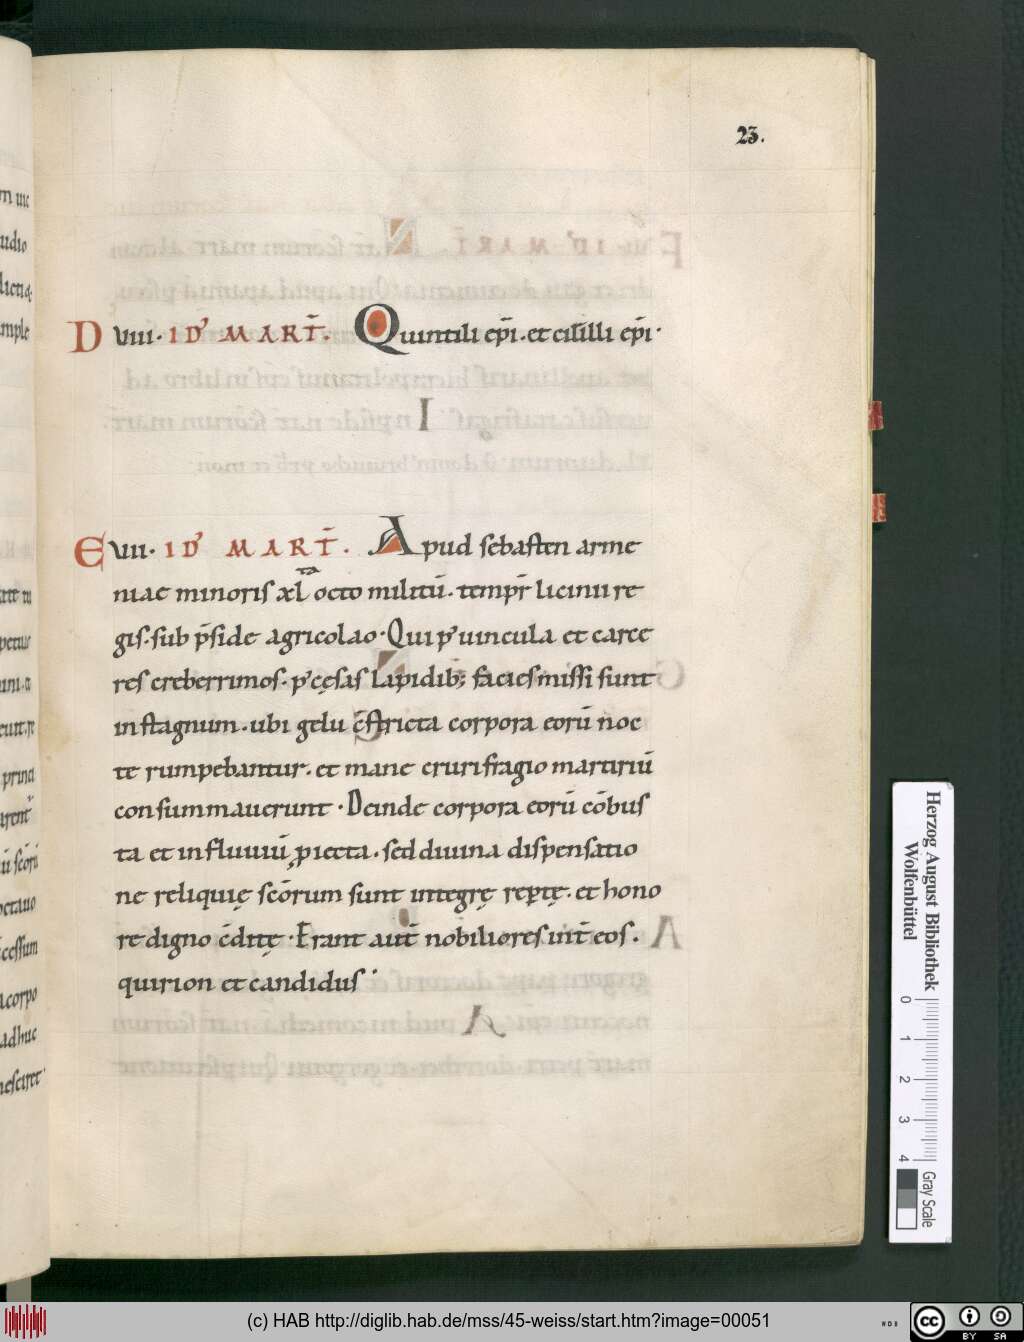 23.
D VIII · ID' MART̄. Quintili ep̄i . et cirilli ep̄i ·
E VII · ID' MART̄ . Apud sebasten arme
niae minoris xl ta octo militū . tempr̄ licinii re
gis . sub p̄side agricolao · Qui p' uincula et carce
res creberrimos . p' cęsas lapidib; facies missi sunt
in stagnum . ubi gelu c̄stricta corpora eorū noc
te rumpebantur . et mane crurifragio martiriū
consummauerunt · Deinde corpora eorū cōbus
ta et in fluuiū ꝓiecta . sed diuina dispensatio
ne reliquię scōrum sunt integrę reꝑtę . et hono
re digno c̄ditę · Erant aut̄ nobiliores int̄ eos .
quirion et candidus ·
Herzog August Bibliothek
Wolfenbüttel
0 1 2 3 4
Gray Scale
(c) HAB http://diglib.hab.de/mss/45-weiss/start.htm?image=00051
cc BY SA